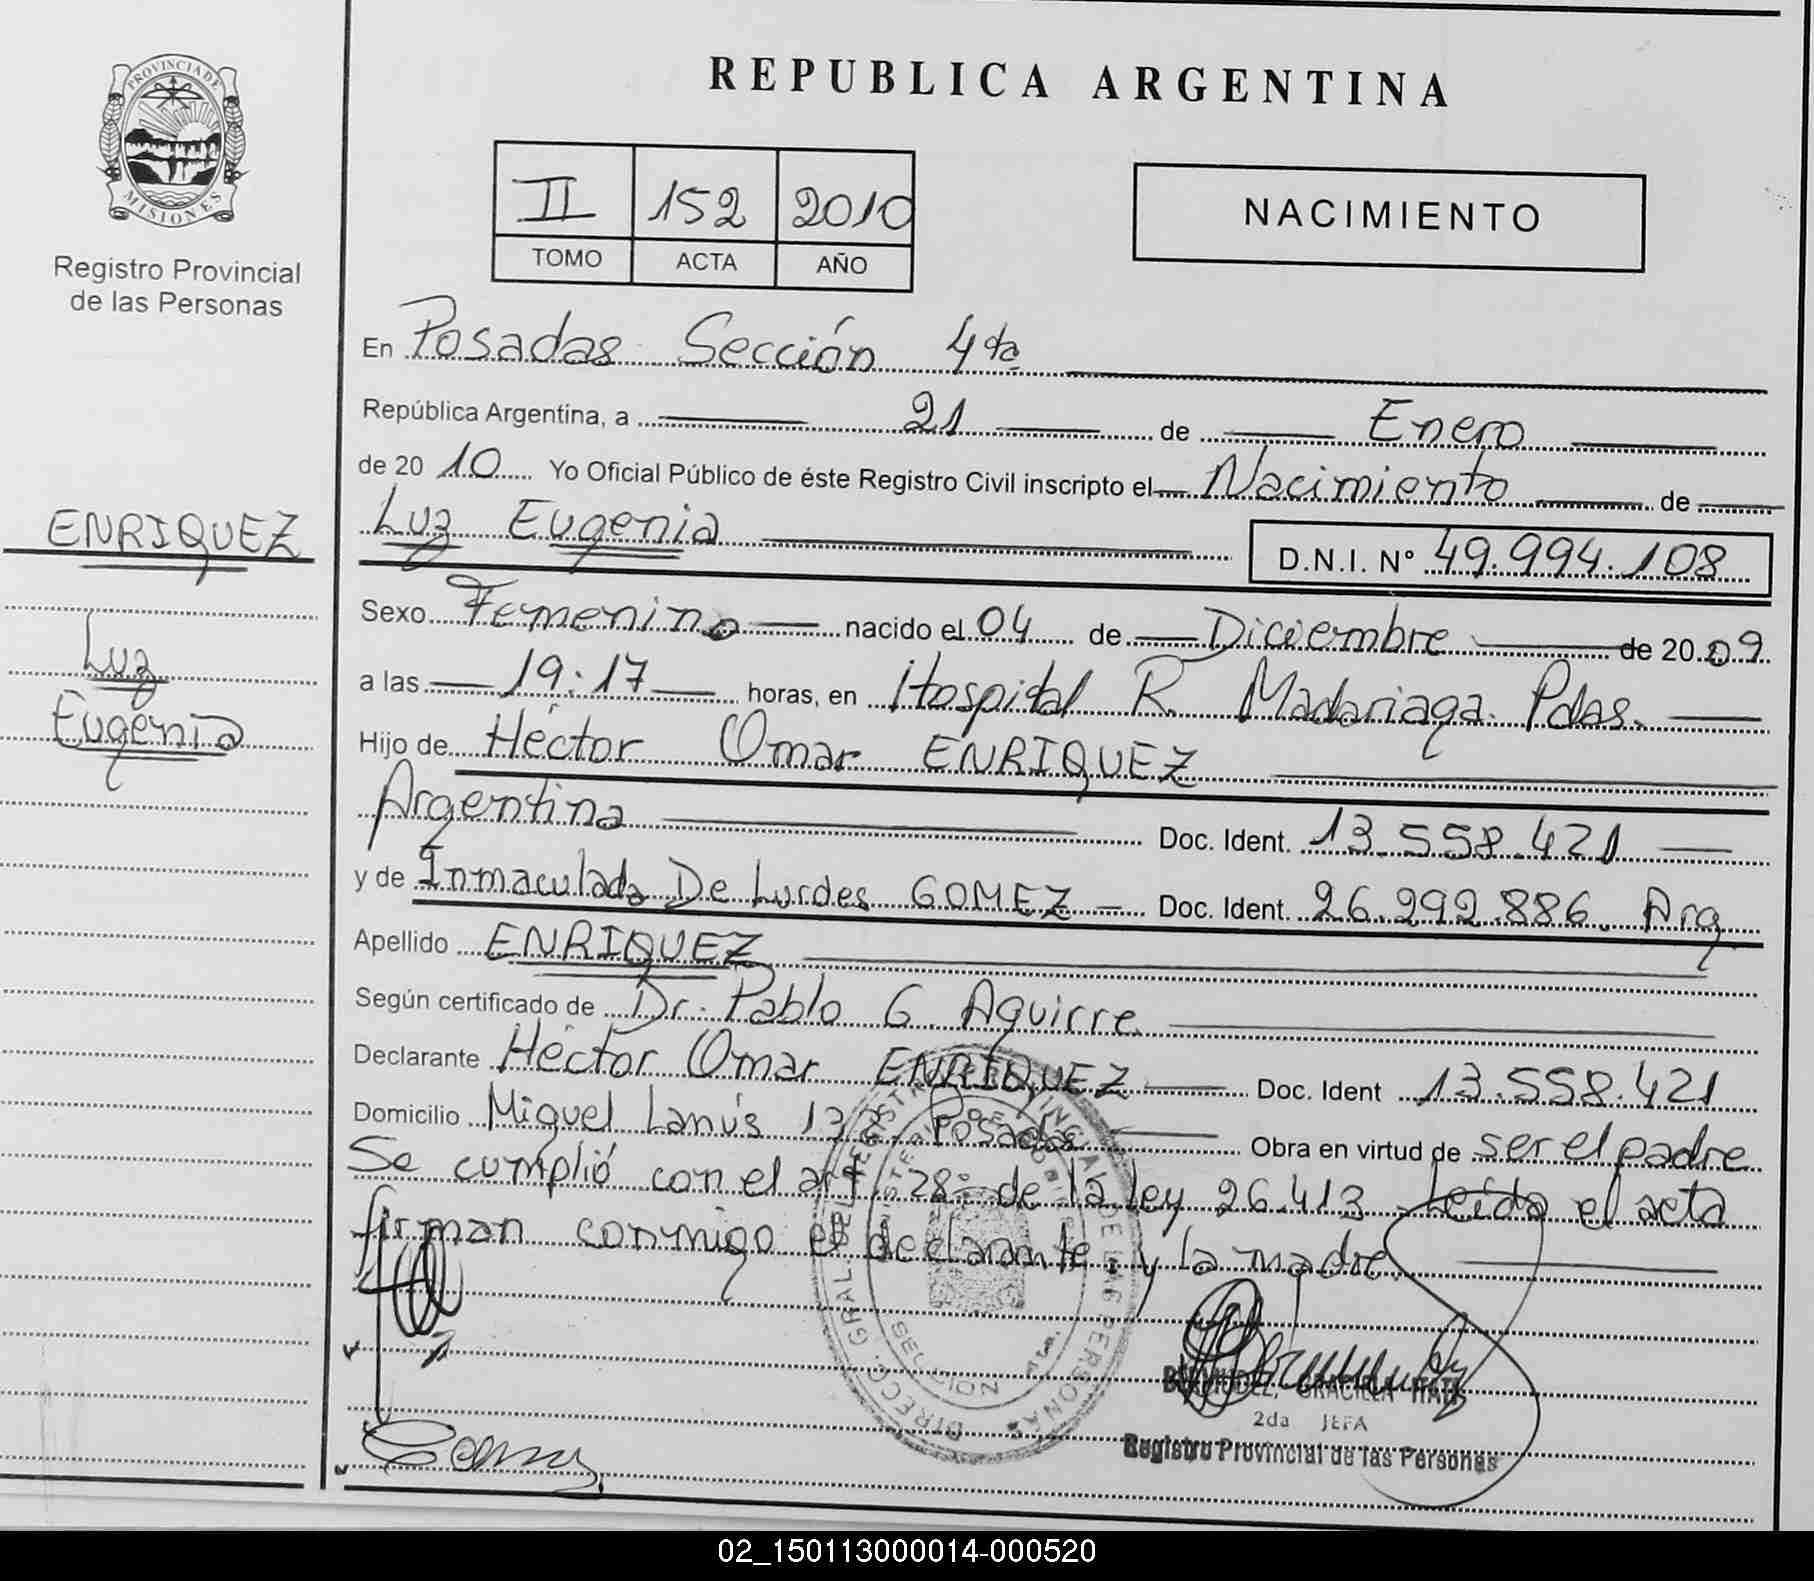 PROVINCIA DE
MISIONES
Registro Provincial
de las Personas
ENRIQUEZ
Luz
Eugenia
REPUBLICA ARGENTINA
II 152 2010
TOMO ACTA AÑO
NACIMIENTO
En Posadas Sección 4ta
República Argentina, a 21 de Enero
de 2010 Yo Oficial Público de éste Registro Civil inscripto el Nacimiento de
Luz Eugenia D.N.I. N° 49.994.108
Sexo Femenino nacido el 04 de Diciembre de 2009
a las 19:17 horas, en Hospital R. Madariaga. Pdas.
Hijo de Héctor Omar ENRIQUEZ
Argentina Doc. Ident. 13.558.421
y de Inmaculada De Lurdes GOMEZ Doc. Ident. 26.292.886. Arg
Apellido ENRIQUEZ
Según certificado de Dr. Pablo G. Aguirre
Declarante Héctor Omar ENRIQUEZ Doc. Ident 13.558.421
Domicilio Miguel Lanús Posadas Obra en virtud de ser el padre
Se cumplió con el art. 28° de la ley 26.413 Leída el acta
firman conmigo el declarante y la madre
GRACIELA ITATI
2da JEFA
Registro Provincial de las Personas
02_150113000014-000520